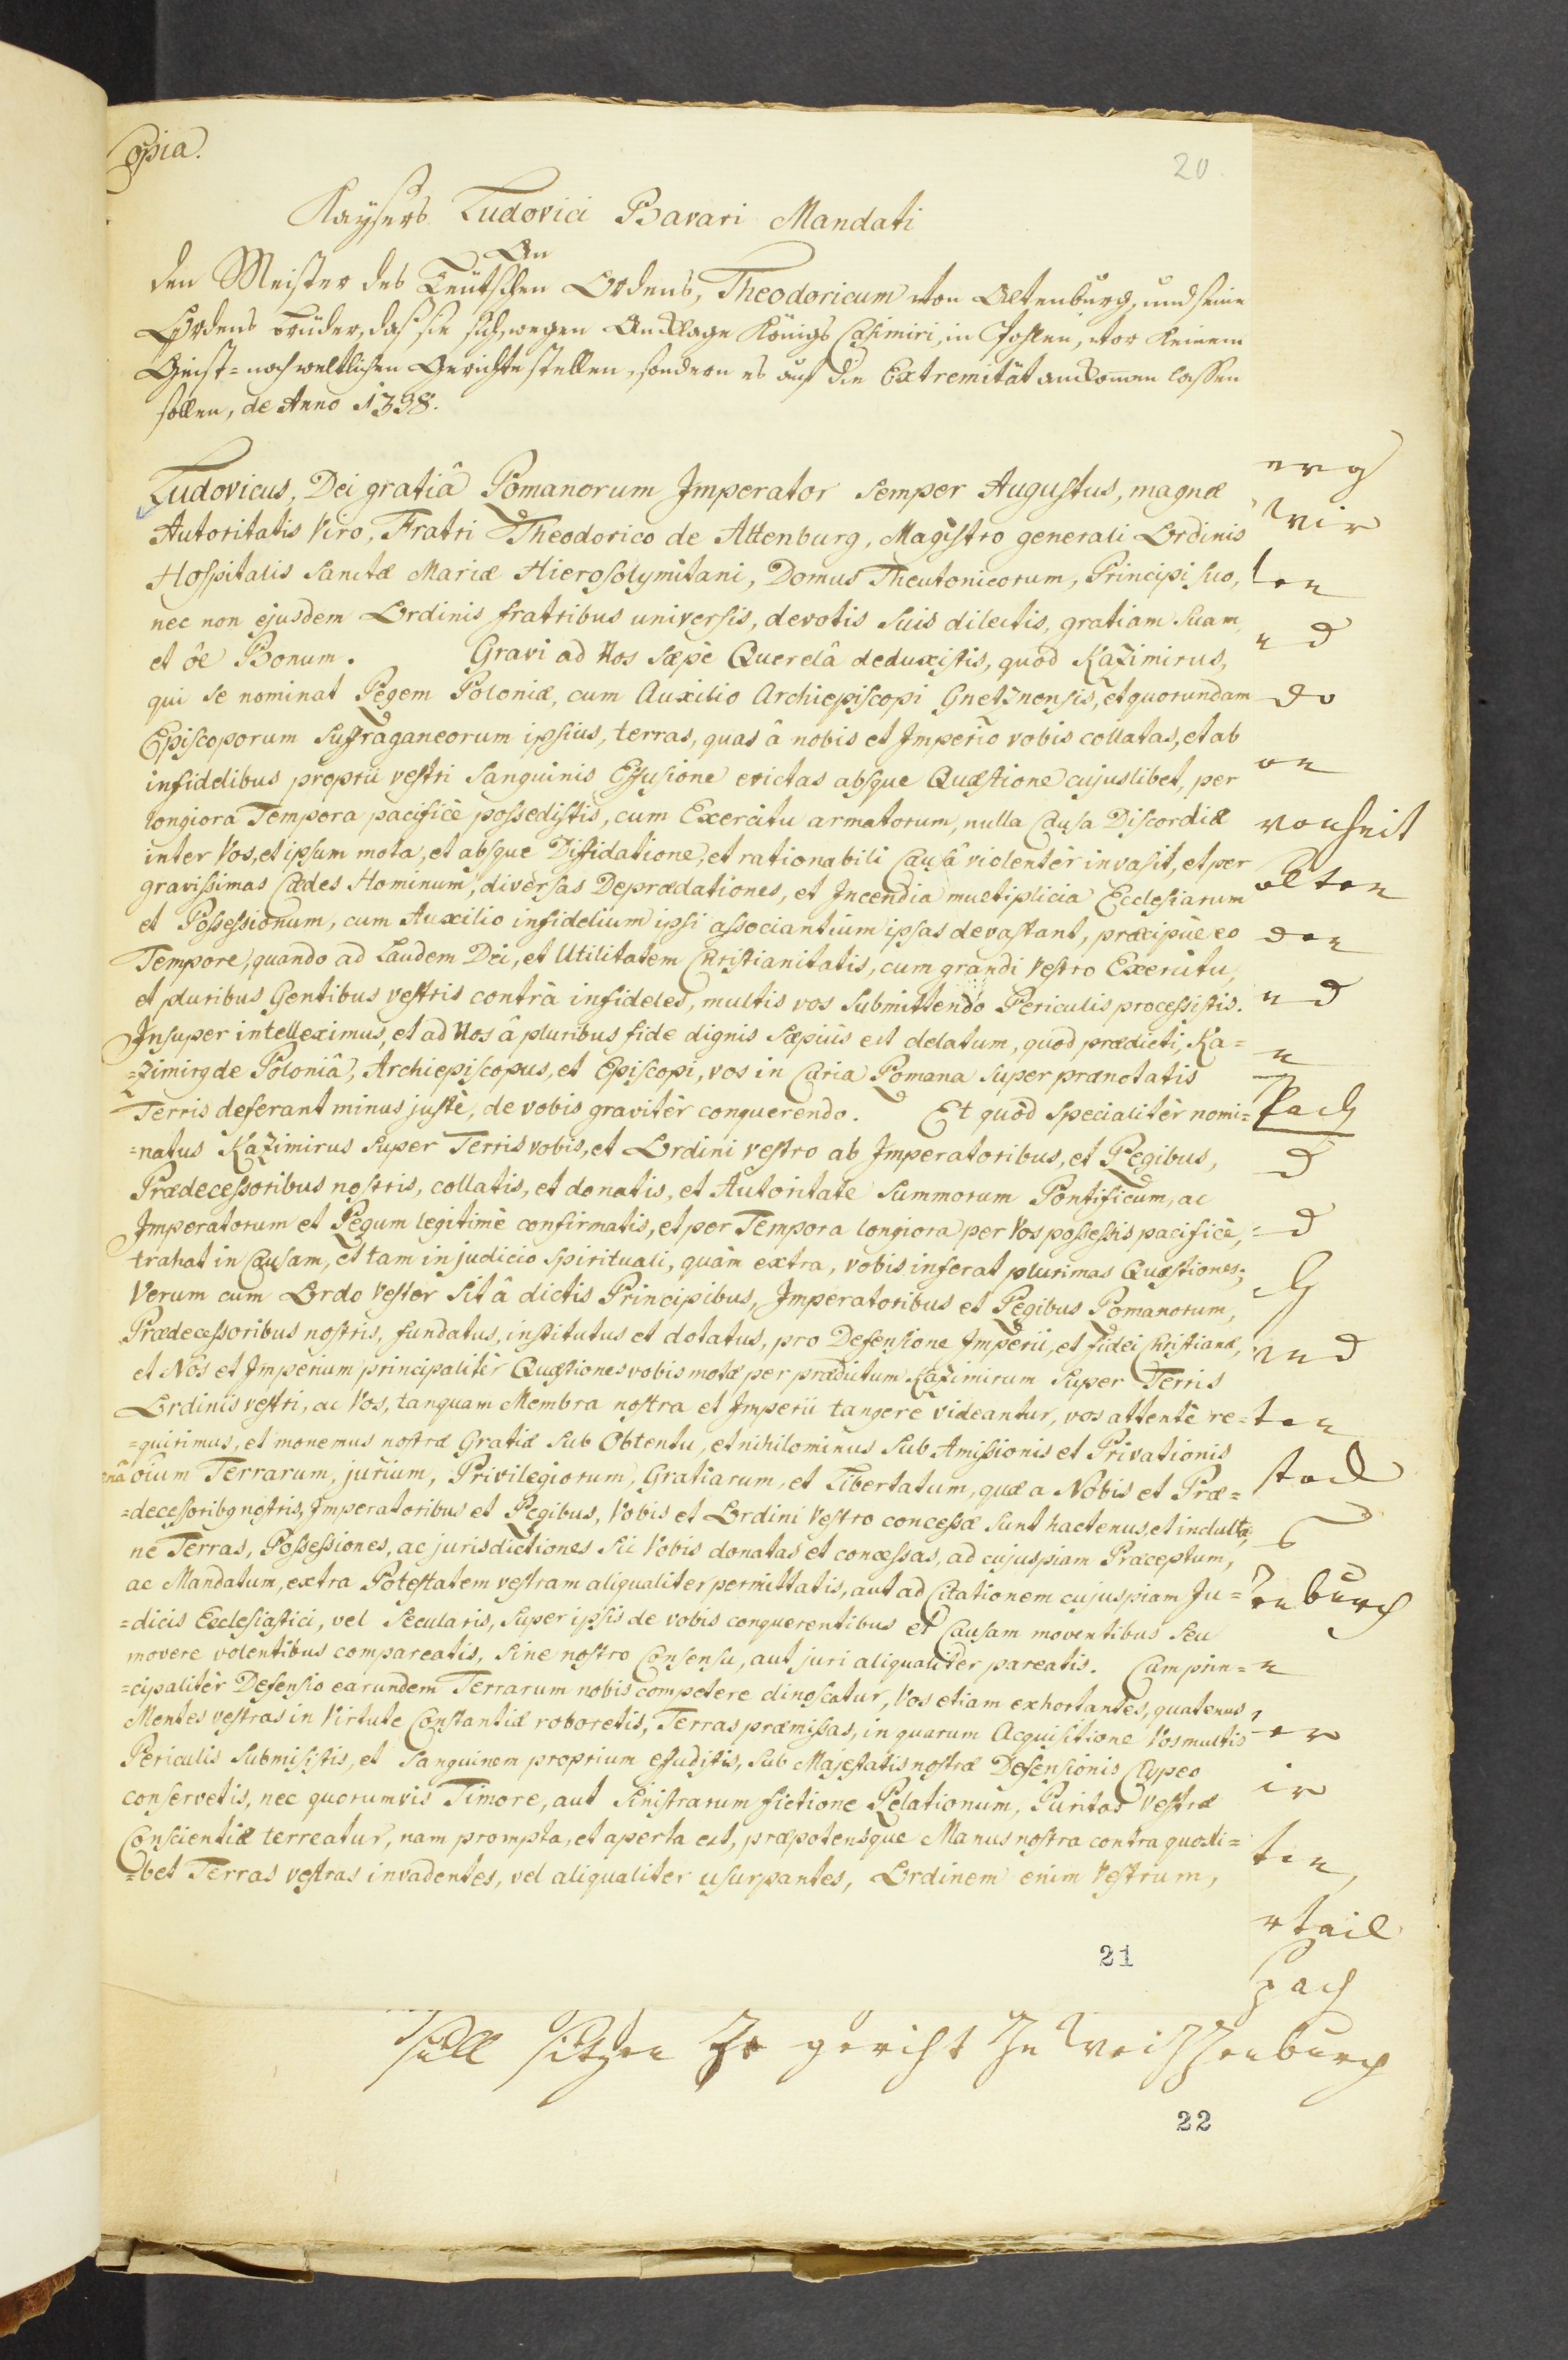 Copia.
20.
Kaysers Ludovici Bavari Mandati
An
den Meister des Teütschen Ordens, Theodoricum von Altenburg, und seine
Ordens brüder, daß sie sich, wegen Anklage Königs Casimiri, in Pohlen, vor keinem
Geist= noch weltlichen Gerichte stellen, sondern es auf die Extremität ankom̄en lassen
sollen, de Anno 1338.
Ludovicus, Dei gratiâ Romanorum Imperator semper Augustus, magnæ
Autoritatis Viro, Fratri Theodorico de Altenburg, Magistro generali Ordinis
Hospitalis Sanctæ Mariæ Hierosolymitani, Domus Theutonicorum, Principi suo,
nec non ejusdem Ordinis fratribus universis, devotis suis dilectis, gratiam suam,
et ōe Bonum. Gravi ad Nos sæpè Querelâ deduxistis, quod Kazimirus,
qui se nominat Regem Poloniæ, cum Auxilio Archiepiscopi Gnetznensis, et quorundam
Episcoporum suffraganeorum ipsius, terras, quas â nobis et Imperio vobis collatas, et ab
infidelibus proprii vestri Sanguinis Effusione evictas absque Quæstione cujuslibet, per
longiora Tempora pacificè possedistis, cum Exercitu armatorum, nulla Causa Discordiæ
inter Vos, et ipsum mota, et absque Diffidatione, et rationabili Causâ violentèr invasit, et per
gravissimas Cædes Hominum, diversas Deprædationes, et Incendia multiplicia Ecclesiarum
et Possessionum, cum Auxilio infidelium ipsi associantium ipsas devastant, præcipuè eo
Tempore, quando ad Laudem Dei, et Utilitatem Christianitatis, cum grandi vestro Exercitu,
et pluribus Gentibus vestris contrà infideles, multis vos submittendo Periculis processistis.
Insuper intelleximus, et ad Nos â pluribus fide dignis sæpius est delatum, quod prædicti, Ka=
=zimirg de Poloniâ, Archiepiscopus, et Episcopi, vos in Curia Romana super prænotatis
Terris deferant minus justè, de vobis gravitèr conquerendo. Et quòd specialitèr nomi=
=natus Kazimirus super Terris vobis, et Ordini vestro ab Imperatoribus, et Regibus,
Prædecessoribus nostris, collatis, et donatis, et Autoritate Summorum Pontificum, ac
Imperatorum et Regum legitimè confirmatis, et per Tempora longiora per Vos possessis pacificè,
trahat in Causam, et tam in judicio spirituali, quàm extra, vobis inferat plurimas Quæstiones;
Verum cum Ordo vester sit â dictis Principibus, Imperatoribus et Regibus Romanorum,
Prædecessoribus nostris, fundatus, institutus et dotatus, pro Defensione Imperii, et fidei Christianæ,
et Nos et Imperium principalitèr Quæstiones vobis motæ per prædictum Kazimirum super Terris
Ordinis vestri, ac Vos, tanquam Membra nostra et Imperii tangere videantur, vos attentè re=
=quirimus, et monemus nostræ Gratiæ sub Obtentu, et nihilominus sub Amissionis et Privationis
oīum Terrarum, jurium, Privilegiorum, Gratiarum, et Libertatum, quæ a Nobis et Præ=
=decessoribg nostris, Imperatoribus et Regibus, Vobis et Ordini vestro concessæ sunt hactenus, et indultæ,
ne Terras, Possessiones, ac jurisdictiones sic Vobis donatas et concessas, ad cujuspiam Præceptum,
ac Mandatum, extra Potestatem vestram aliqualiter permittatis, aut ad Citationem cujuspiam Ju=
=dicis Ecclesiastici, vel Secularis, super ipsis de vobis conquerentibus et Causam moventibus seu
movere volentibus compareatis, sine nostro Consensu, aut juri aliqualiter pareatis. Cum prin=
=cipalitèr Defensio earundem Terrarum nobis competere dinoscatur, Vos etiam exhortantes, quatenus
Mentes vestras in Virtute Constantiæ roboretis, Terras præmissas, in quarum Acquisitione Vos multis
Periculis submisistis, et Sanguinem proprium effuditis, sub Majestatis nostræ Defensionis Clypeo
conservetis, nec quorumvis Timore, aut sinistrarum fictione Relationum, Puritas vestræ
Conscientiæ terreatur, nam prompta, et aperta est, præpotensque Manus nostra contra quosli=
=bet Terras vestras invadentes, vel aliqualiter usurpantes, Ordinem enim vestrum,
21
erg
wir
ten
nd
do
on
vonheit
alten
den
nd
n
d
d
und
ten
enburg
n
er
ir
ten,
rtail
pach
süll sitzen ze gericht ze Weissenburg
22